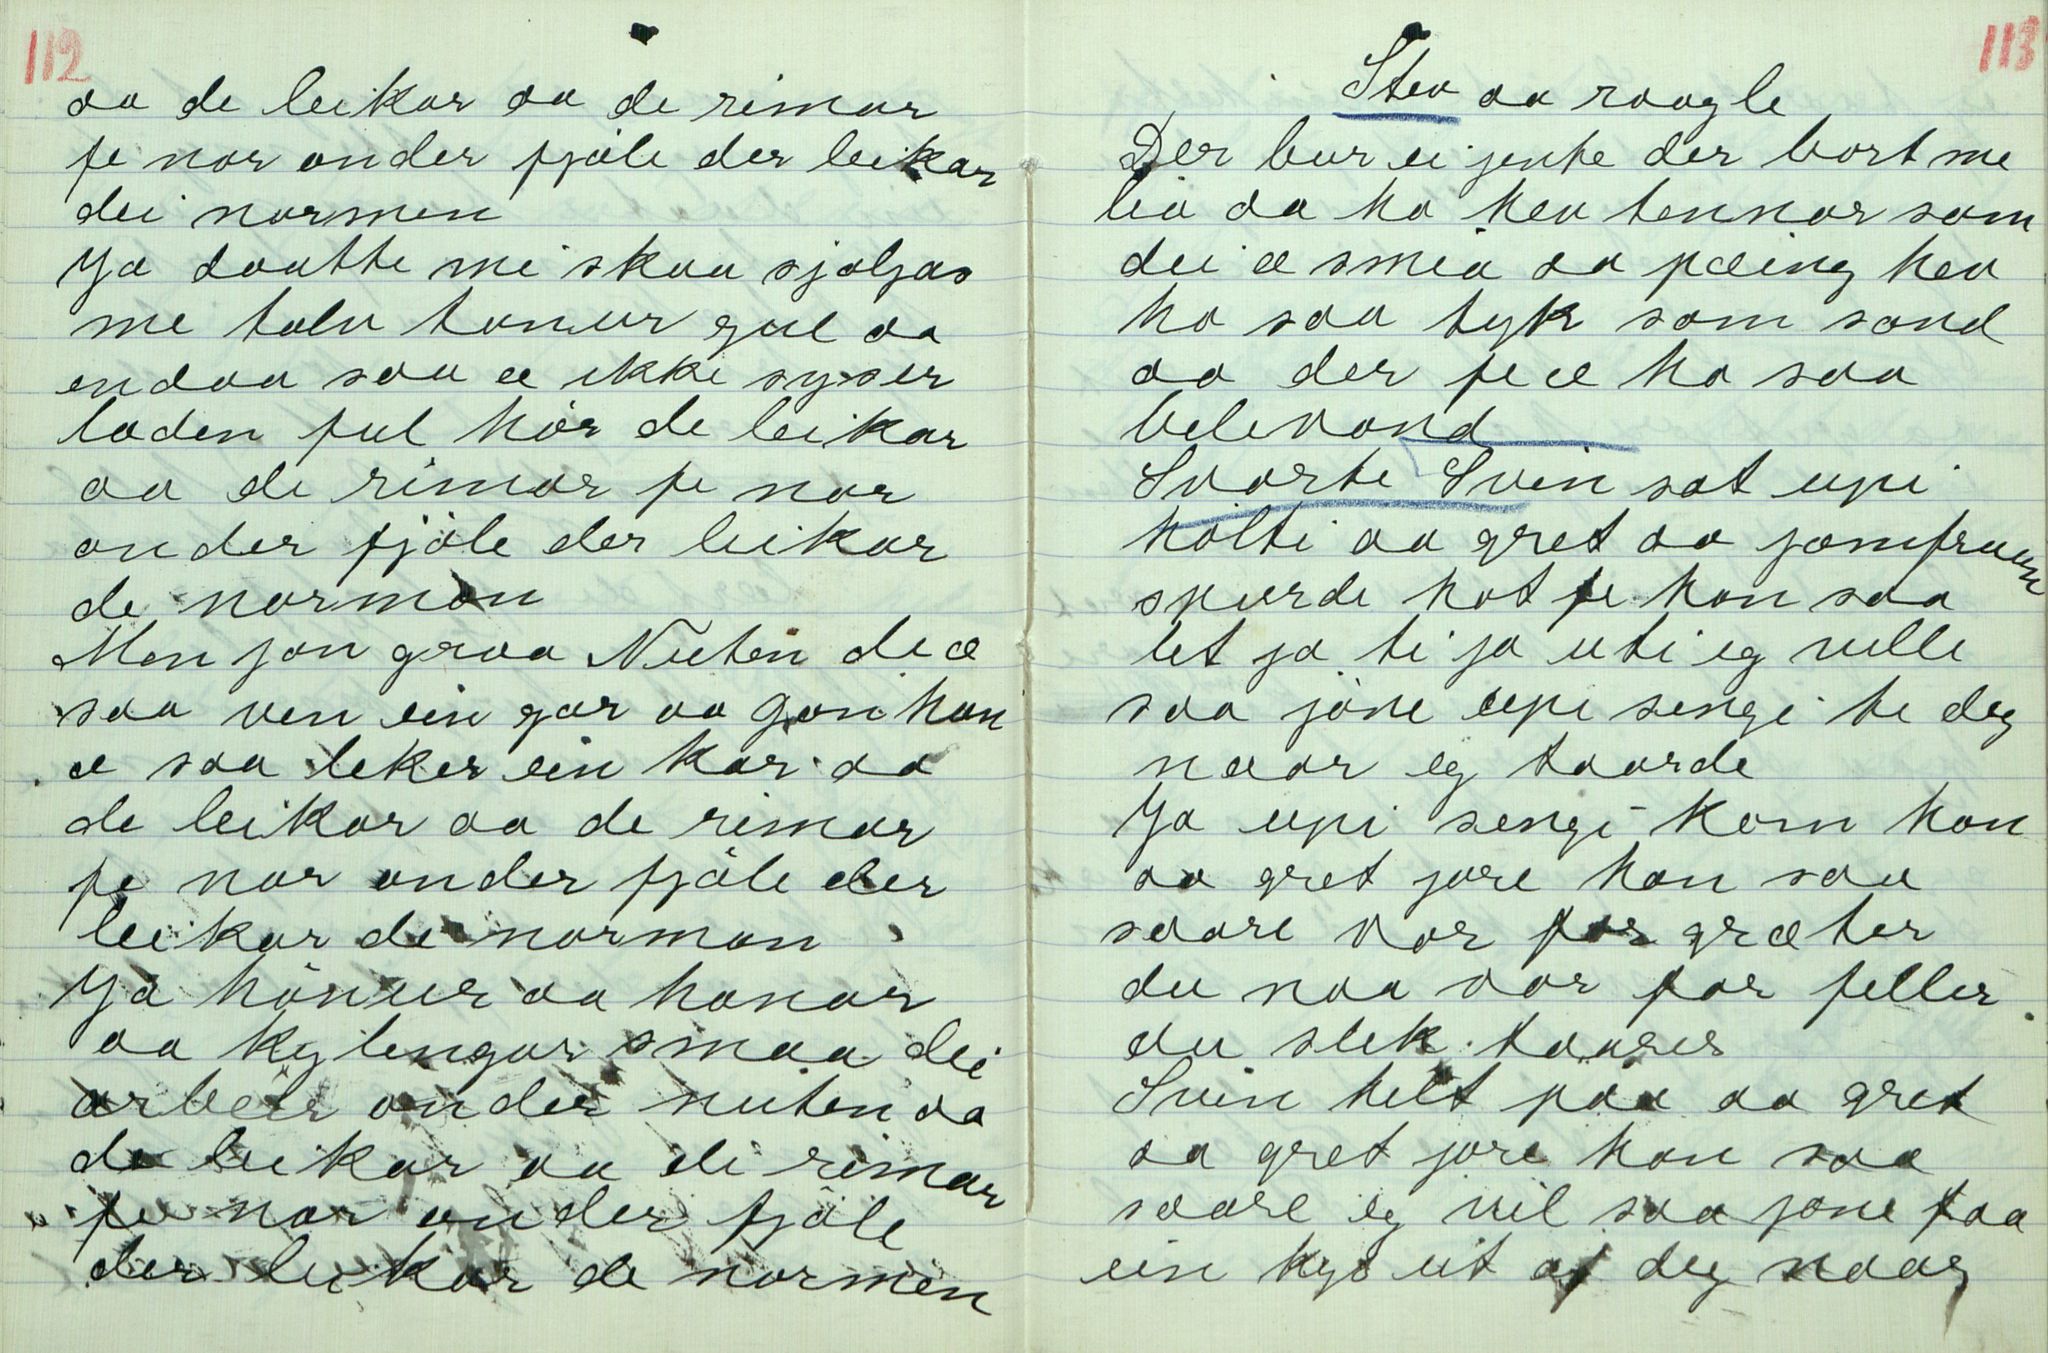 112
aa de leikar aa de rimar
fe nor onder fjøle der leikar
dei normen
Ja daatte mi skaa sjølgas
me tolv tonur gul aa
endaa saa æ ikki syser
laden ful hør de leikar
aa de rimar fe nor
onder fjøle der leikar
de normon
Men jon graa Nuten de æ
saa ven ein gar aa Jon han
æ saa leker ein kar aa
de leikar aa de rimar
fe nor onder fjøle der
leikar de normon
Ja hønur aa hanar
aa kylingar smaa dei
arbeir onder nuten aa
de leikar aa de rimar
fe nor onder fjøle
der leikar de normen
113
Stev aa raagle
Der bur ei jente der bort me
lia aa ho hev tennar som
dei æ smia aa pæing hev
ho saa tyk som sand
aa der fe æ ho saa
belevand
Svarte Svin sat upi
hølti aa gret aa jomfruun
spurde hot fe han saa
let ja ti ja uti eg ville
saa jøne upi sengi te deg
naar eg taarde
Ja upi sengi kom han
aa gret jore han saa
saare vor for græter
du naa vor for feller
du slik taarer
Svin helt paa aa gret
aa gret jore han saa
saare eg vil saa jøne faa
ein kys ut af deg naag